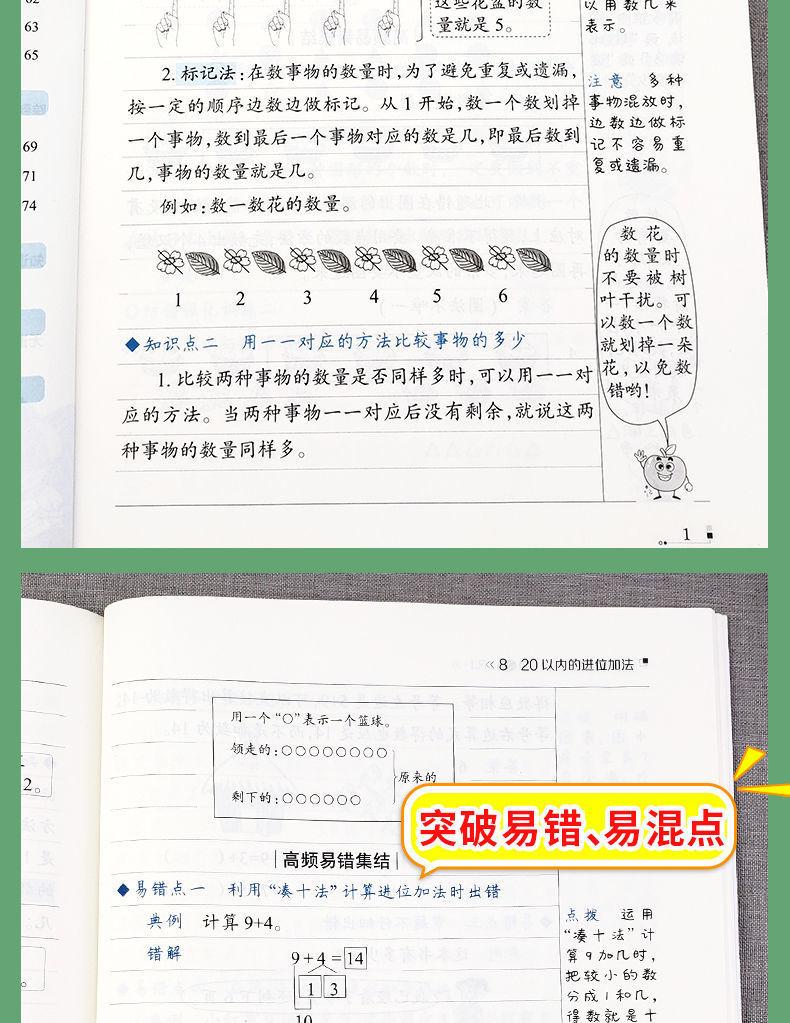 62
63
65
69
71
74
这些花盆的数
量就是5。
以用数几来
表示。
2. 标记法：在数事物的数量时，为了避免重复或遗漏，
按一定的顺序边数边做标记。从1开始，数一个数划掉
一个事物，数到最后一个事物对应的数是几，即最后数到
几，事物的数量就是几。
例如：数一数花的数量。
注意 多种
事物混放时，
边数边做标
记不容易重
复或遗漏。
1 2 3 4 5 6
数花
的数量时
不要被树
叶干扰。可
以数一个数
就划掉一朵
花，以免数
错哟！
◆知识点二 用一一对应的方法比较事物的多少
1. 比较两种事物的数量是否同样多时，可以用一一对
应的方法。当两种事物一一对应后没有剩余，就说这两
种事物的数量同样多。
1
≪ 8 20以内的进位加法
用一个“○”表示一个篮球。
领走的：○○○○○○○○○
原来的
剩下的：○○○○○○
2。
突破易错、易混点
高频易错集结
◆易错点一 利用“凑十法”计算进位加法时出错
典例 计算9+4。
错解
9+4=14
1 3
10
点拨 运用
“凑十法”计
算9加几时，
把较小的数
分成1和几，
得数就是十